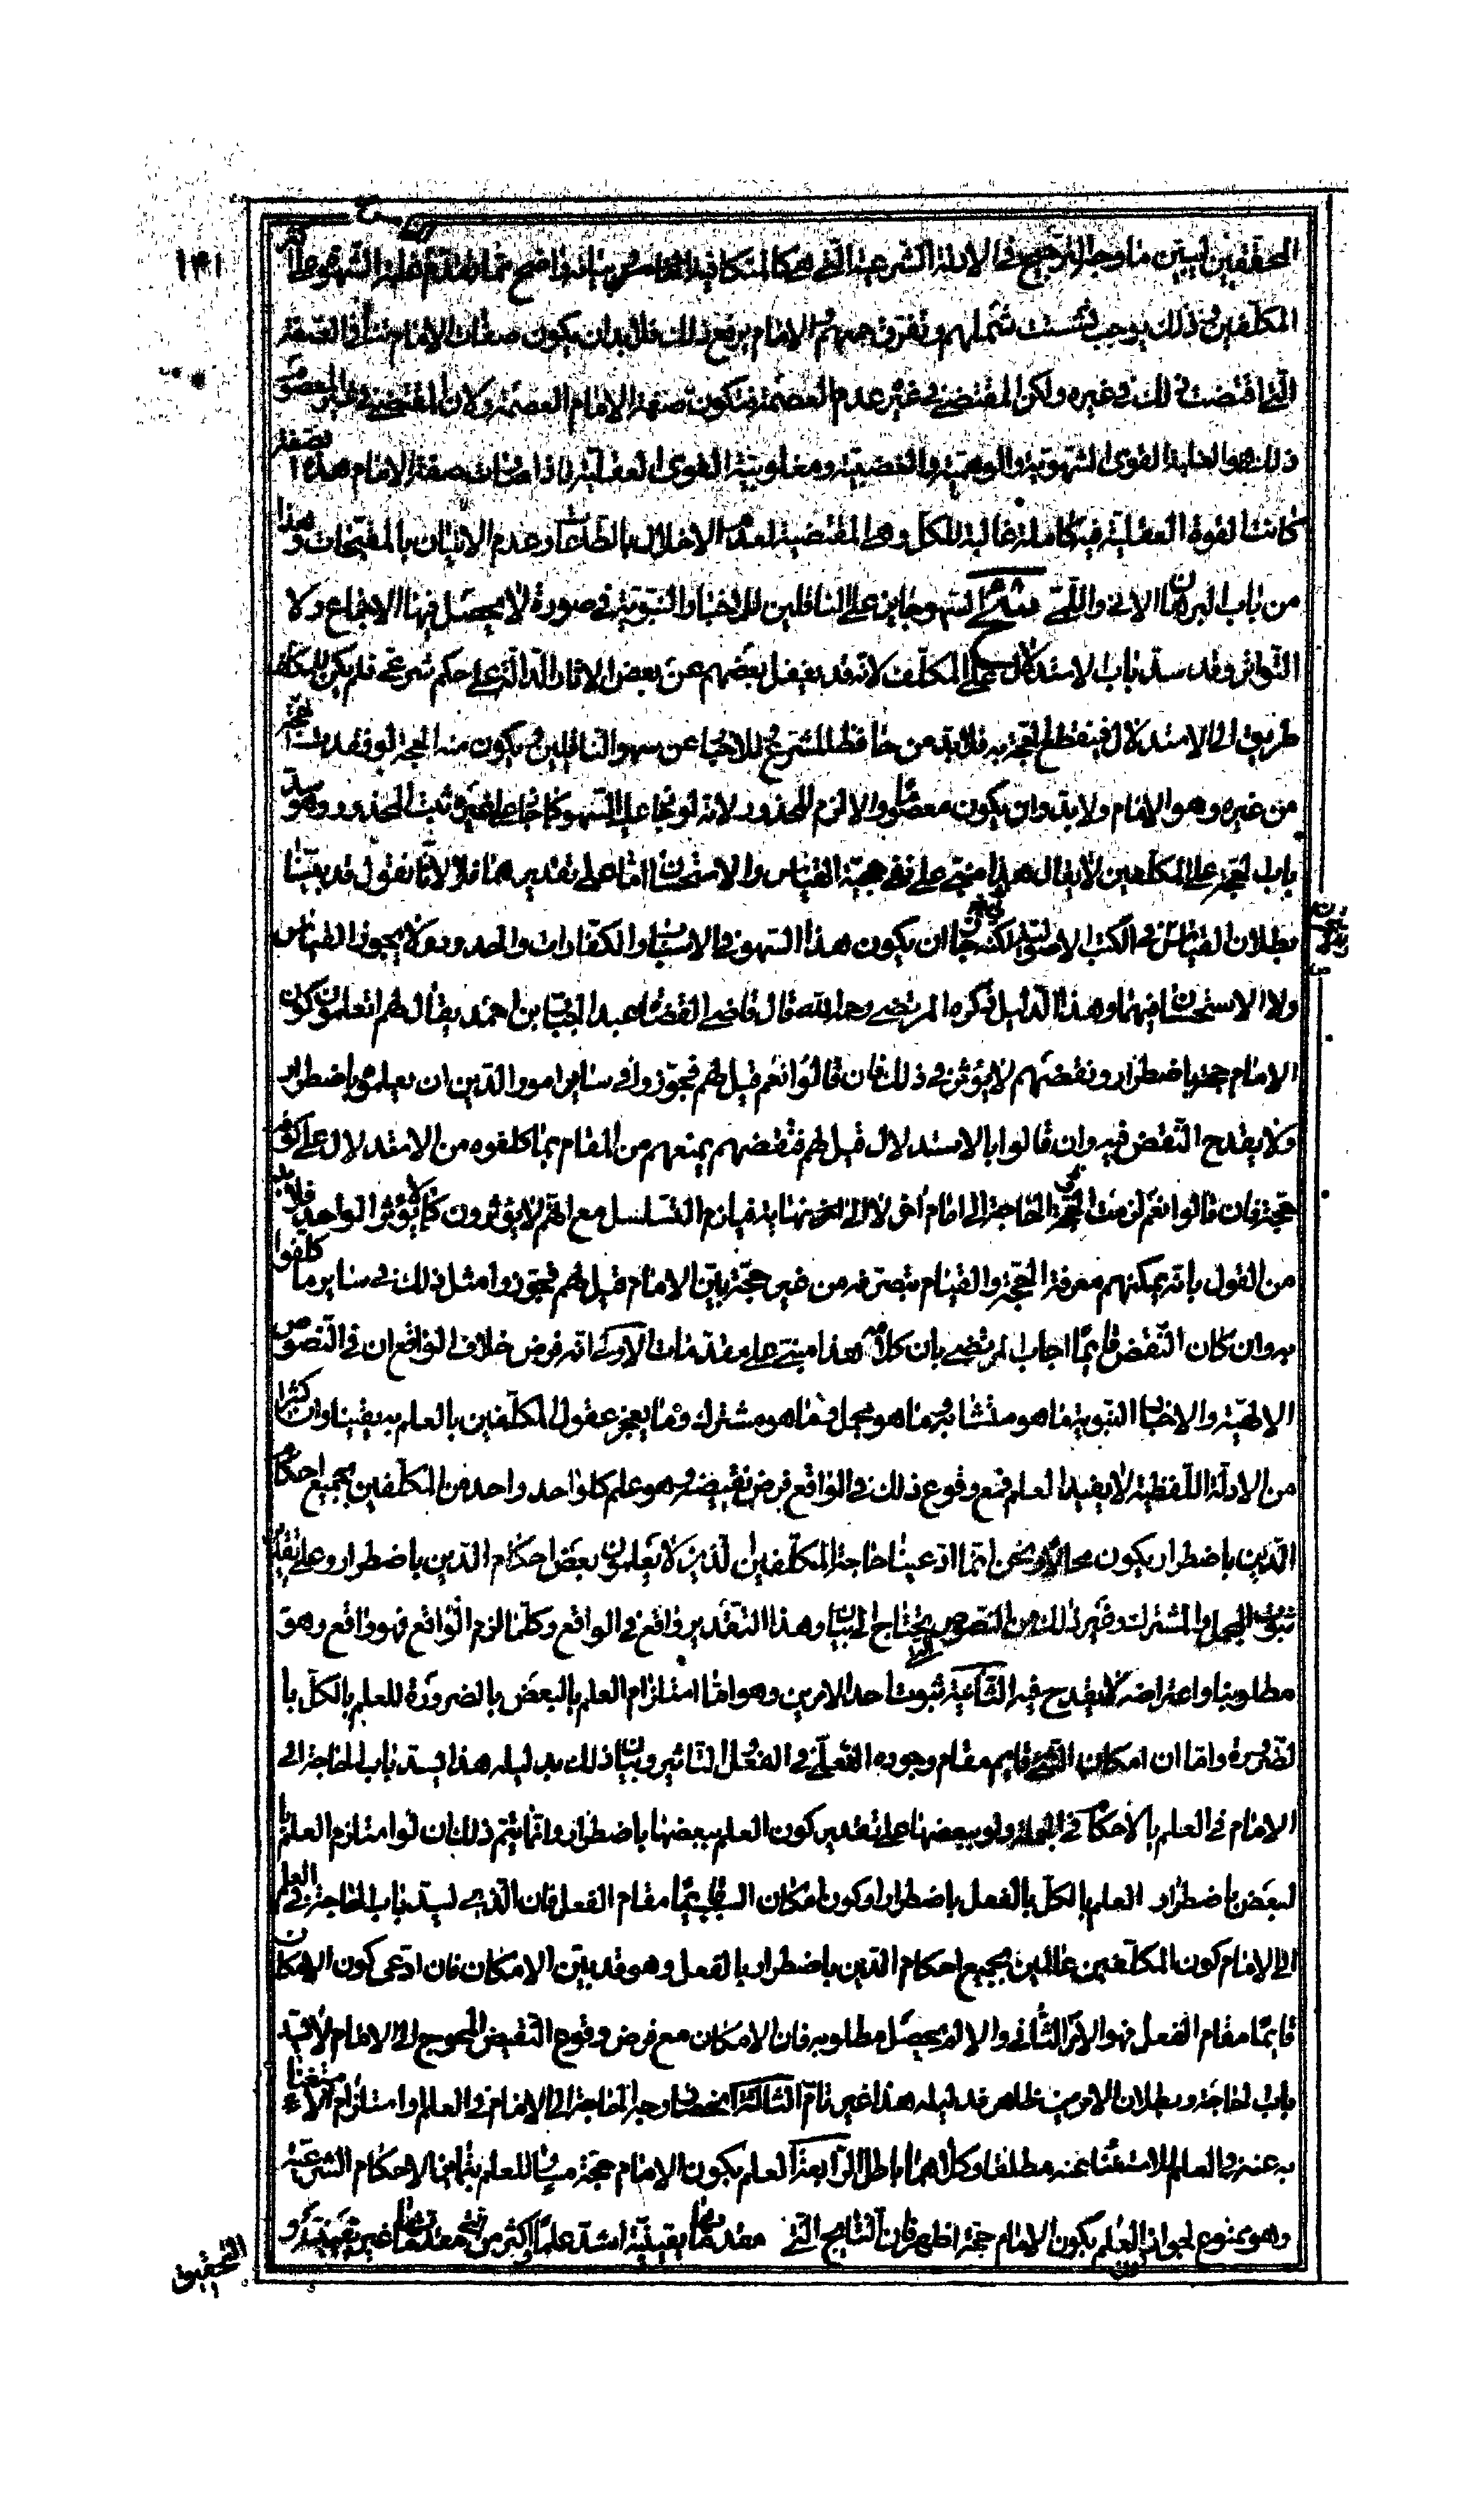 ١٣١
المحققين ليبين ما وجه الترجيح في الادلة الشرعية التي هي كالمتكافية الخامس بيانه واضح مما تقدم غلبة الشهوة على اكثر
المكلفين وذلك يوجب تشتت شملهم وتفرق جمعهم والامام يرفع ذلك فلا بد ان يكون صفات الامام تنافي الصفة
التي اقتضت ذلك في غيره ولكن المقتضي في غيره عدم العصمة فتكون صفة الامام العصمة ولان المقتضي في غير المعصوم
ذلك هو غلبة القوى الشهوية والوهمية والغضبية ومغلوبية القوى العقلية فاذا صفة الامام هذه
كانت القوة العقلية فيه كاملة غالبة للكل وهي المقتضية لعدم الاخلال بالطاعات وعدم الاتيان بالمقبحات وهذا
من باب البرهان الاني واللمي السهو جايز على الناقلين للاخبار النبوية في صورة لا يحصل فيها الاجماع ولا
التواتر وقد سد باب الاستدلال على المكلف لانه قد يغفل بعضهم عن بعض الاثار الدالة على حكم شرعي فلم يكن للمكلف
طريق الى الاستدلال فينقطع الحجة به فلا بد من حافظ للشرع للاخبار عن سهو الناقلين ويكون منه الحجة لو فقدت الحجة
من غيره وهو الامام ولا بد وان يكون معصوما والا لزم المحذور لانه لو جاز عليه السهو كما جاز على غيره ثبت المحذور وهو سد
باب الحجة على المكلفين لا يقال هذا مبني على نفي حجية القياس والاستحسان اما على تقديرهما فلا لانا نقول قد بينا
بطلان القياس في الكتب الاصولية لكنه جاز ان يكون هذا السهو في الاسباب والكفارات والحدود ولا يجوز القياس
ولا الاستحسان فيهما وهذا الدليل ذكره المرتضى رحمه الله قال قاضي القضاة عبد الجبار بن احمد يقال لهم اتعلمون كون
الامام حجة باضطرار ونقضهم لا يؤثر في ذلك فان قالوا نعم قيل لهم فجوزوا في ساير امور الدين ان يعلموه باضطرار
ولا يقدح النقض فيه وان قالوا بالاستدلال قيل لهم فنقضهم يمنعهم من القيام بما كلفوه من الاستدلال على كونه
حجة فان قالوا نعم لزمت الحاجة الى امام اخر لا الى نهاية فيلزم التسلسل مع انهم لا يؤثرون كما لا يؤثر الواحد فلا بد
من القول بانه يمكنهم معرفة الحجة والقيام بنصرته من غير حجة يبين الامام قيل لهم فجوزوا مثل ذلك في ساير ما كلفوا
به وان كان النقض قايما اجاب المرتضى بان كلامه هذا مبني على مقدمات الاولى انه فرض خلاف الواقع لان في النصوص
الالهية والاخبار النبوية ما هو متشابه وما هو مجمل وما هو مشترك وما يعجز عقول المكلفين بالعلم به يقينا وان كثيرا
من الادلة اللفظية لا يفيد العلم فمع وقوع ذلك في الواقع فرض نقيضه وهو علم كل واحد واحد من المكلفين بجميع احكام
الدين باضطرار يكون محالا ونحن انما ادعينا حاجة المكلفين الذين لا يعلمون بعض احكام الدين باضطرار وعلى تقدير
ثبوت المجمل والمشترك وغير ذلك من النصوص يحتاج الى بيان وهذا التقدير واقع في الواقع وكلما لزم الواقع فهو واقع وهو
مطلوبنا واعتراضه لا يقدح فيه الثانية ثبوت احد الامرين وهو اما استلزام العلم بالبعض بالضرورة للعلم بالكل با
لضرورة واما ان امكان الشيء قايم مقام وجوده الفعلي في التاثير وبيان ذلك بدليله هذا يسد باب الحاجة الى
الامام في العلم بالاحكام في الجملة ولو ببعضها على تقدير كون العلم ببعضها باضطرار وانما يتم ذلك ان لو استلزم العلم با
لبعض باضطرار العلم بالكل بالفعل باضطرار او كون امكان قايما مقام الفعل فان الذي يسد باب الحاجة في العلم
الى الامام كون المكلفين عالمين بجميع احكام الدين باضطرار بالفعل وهو قد بين الامكان فان ادعى كون الامكان
قايما مقام الفعل فهو الامر الثاني والا لم يحصل مطلوبه فان الامكان مع فرض وقوع النقيض المحوج الى الامام لا يسد
باب الحاجة وبطلان الامرين ظاهر فدليله هذا غير تام الثالثة انحصار وجه الحاجة الى الامام في العلم واستلزام الاستغنا
به عنه في العلم للاستغناء عنه مطلقا وكلاهما باطل الرابعة العلم بكون الامام حجة مساو للعلم بتمام الاحكام الشرعية
وهو ممنوع لجواز العلم بكون الامام حجة اظهر فان النتايج التي مقدماتها يقينية اشد علما واكثر من نتيجة مقدماتها غير يقينية و
التحقيق